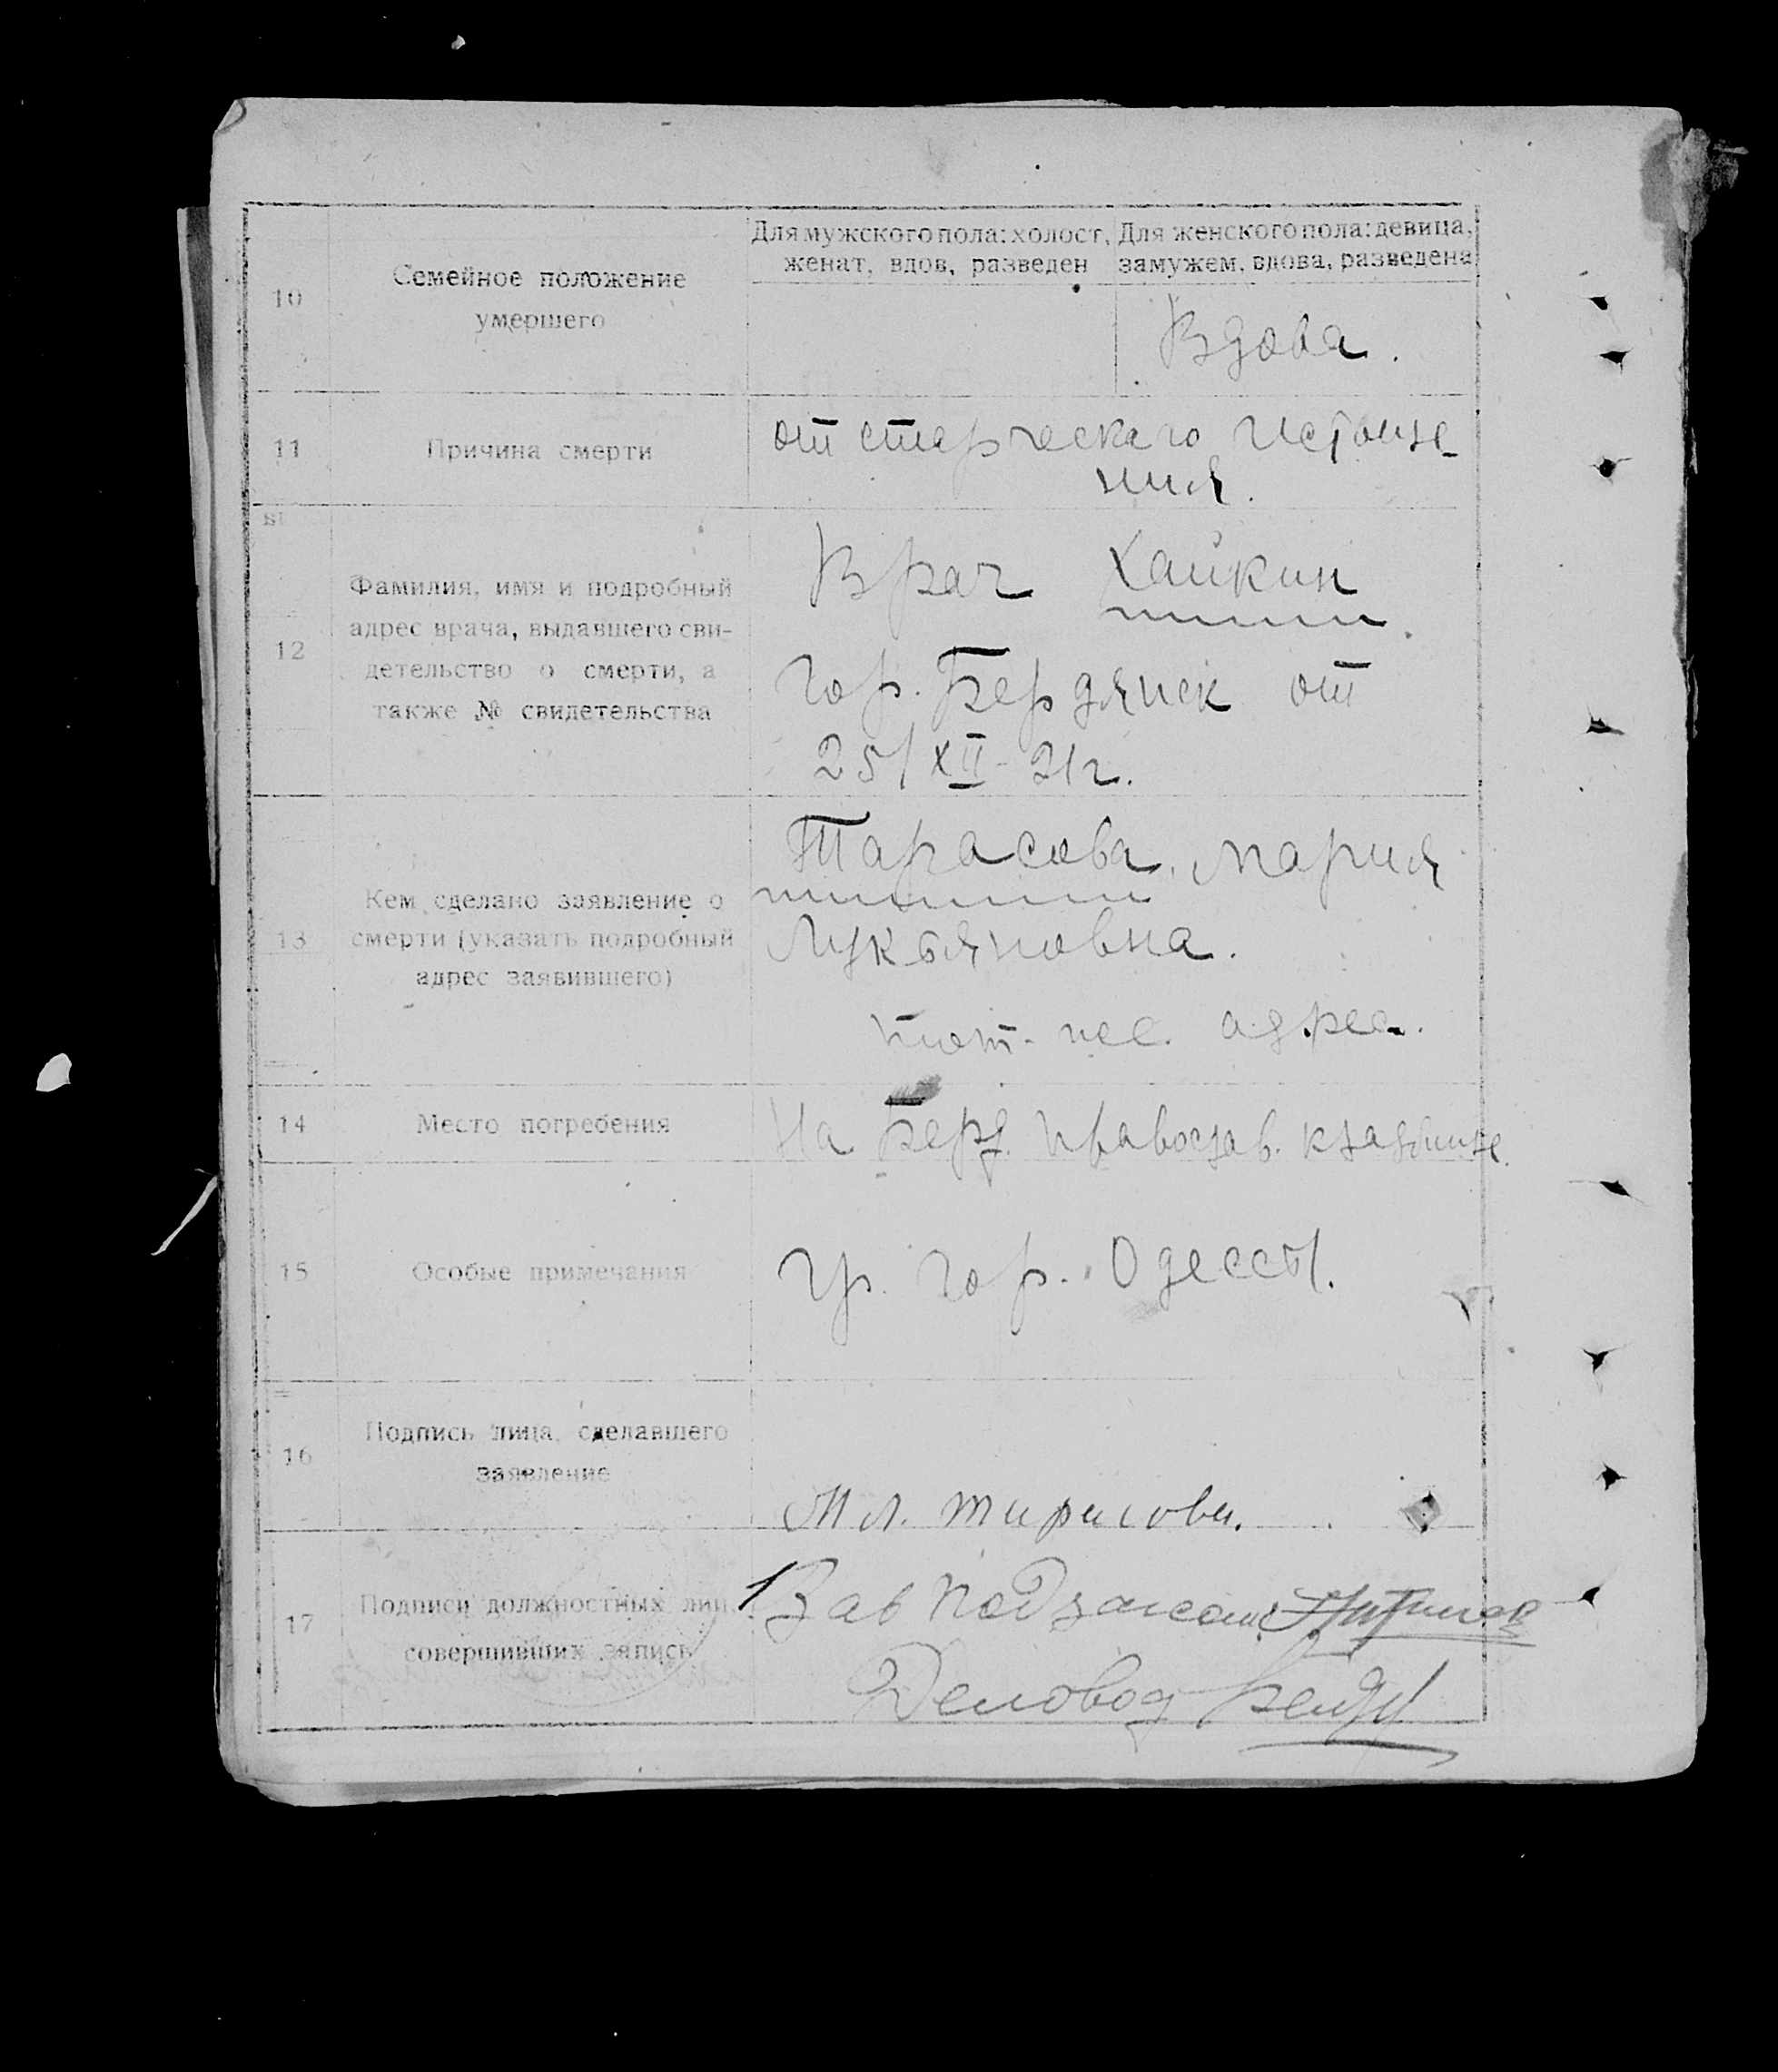 Для мужского пола: холост, женат, вдов, разведен
Для женского пола: девица, замужем, вдова, разведена
10
Семейное положение
умершего
Вдова.
11
Причина смерти
от старческаго истоще-
ния.
12
Фамилия, имя и подробный
адрес врача, выдавшего сви-
детельство о смерти, а
также № свидетельства
Врач Хайкин
Гор. Бердянск от
25/XII-21г.
13
Кем сделано заявление о
смерти (указать подробный
адрес заявившего)
Тарасова, Мария
Лукьяновна.
тот-же адрес.
14
Место погребения
На Берд. Православ. кладбище.
15
Особые примечания
Гр. гор. Одессы.
16
Подпись лица, сделавшего
заявление
М Л. Тарасова.
17
Подписи должностных лиц,
совершивших запись
Зав Подзагсом
Деловод